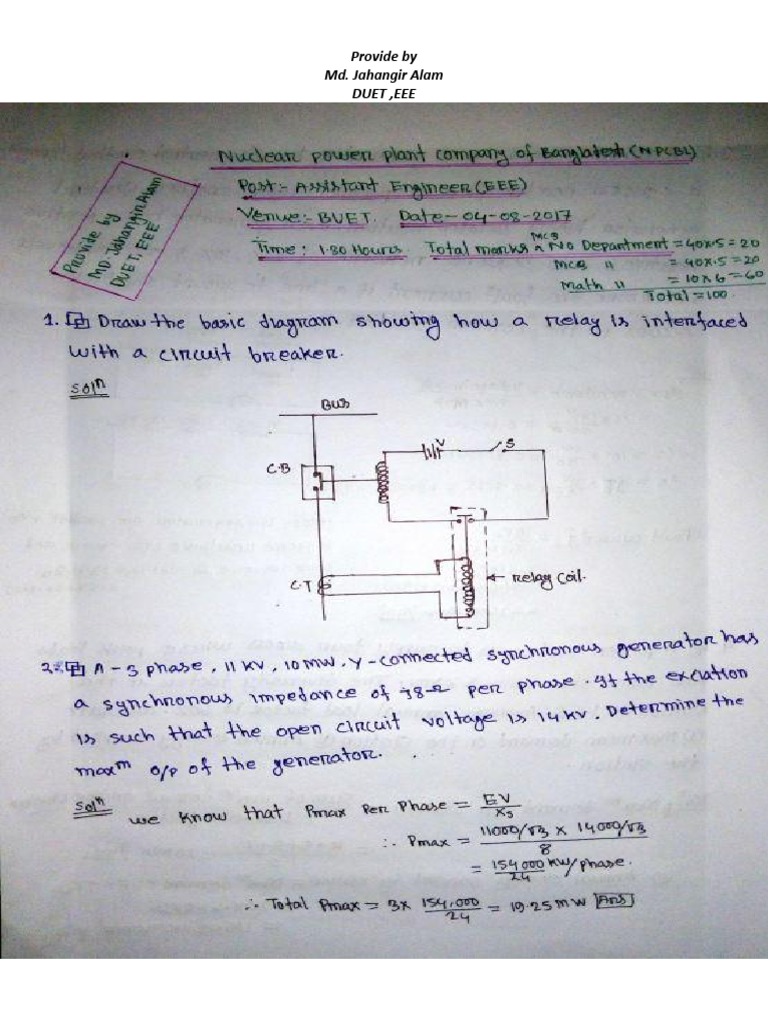 Provide by
Md. Jahangir Alam
DUET ,EEE
Nuclear power plant company of Bangladesh (NPCBL)
Post:- Assistant Engineer (EEE)
Venue:- BUET. Date-04-08-2017
Time: 1.30 Hours. Total marks ⇒ No Department = 40x.5 = 20
MCB
MCB " = 40x.5 = 20
Math " = 10x6 = 60
Total = 100.
Provide by
MD. Jahangir Alam
DUET, EEE
1. Draw the basic diagram showing how a relay is interfaced
with a circuit breaker.
Solⁿ
Bus
C.B
V
S
C.T
relay coil.
2. A-3 phase, 11 kv, 10 MW, Y-connected synchronous generator has
a synchronous impedance of j8-Ω per phase. If the exciation
is such that the open circuit voltage is 14 kv. Determine the
maxᵐ o/p of the generator.
Solⁿ
we know that Pmax Per Phase = EV/Xs
∴ Pmax = 11000/√3 x 14000/√3 / 8
= 154000/24 kw/phase.
∴ Total Pmax = 3x 154,000/24 = 19.25 MW Ans